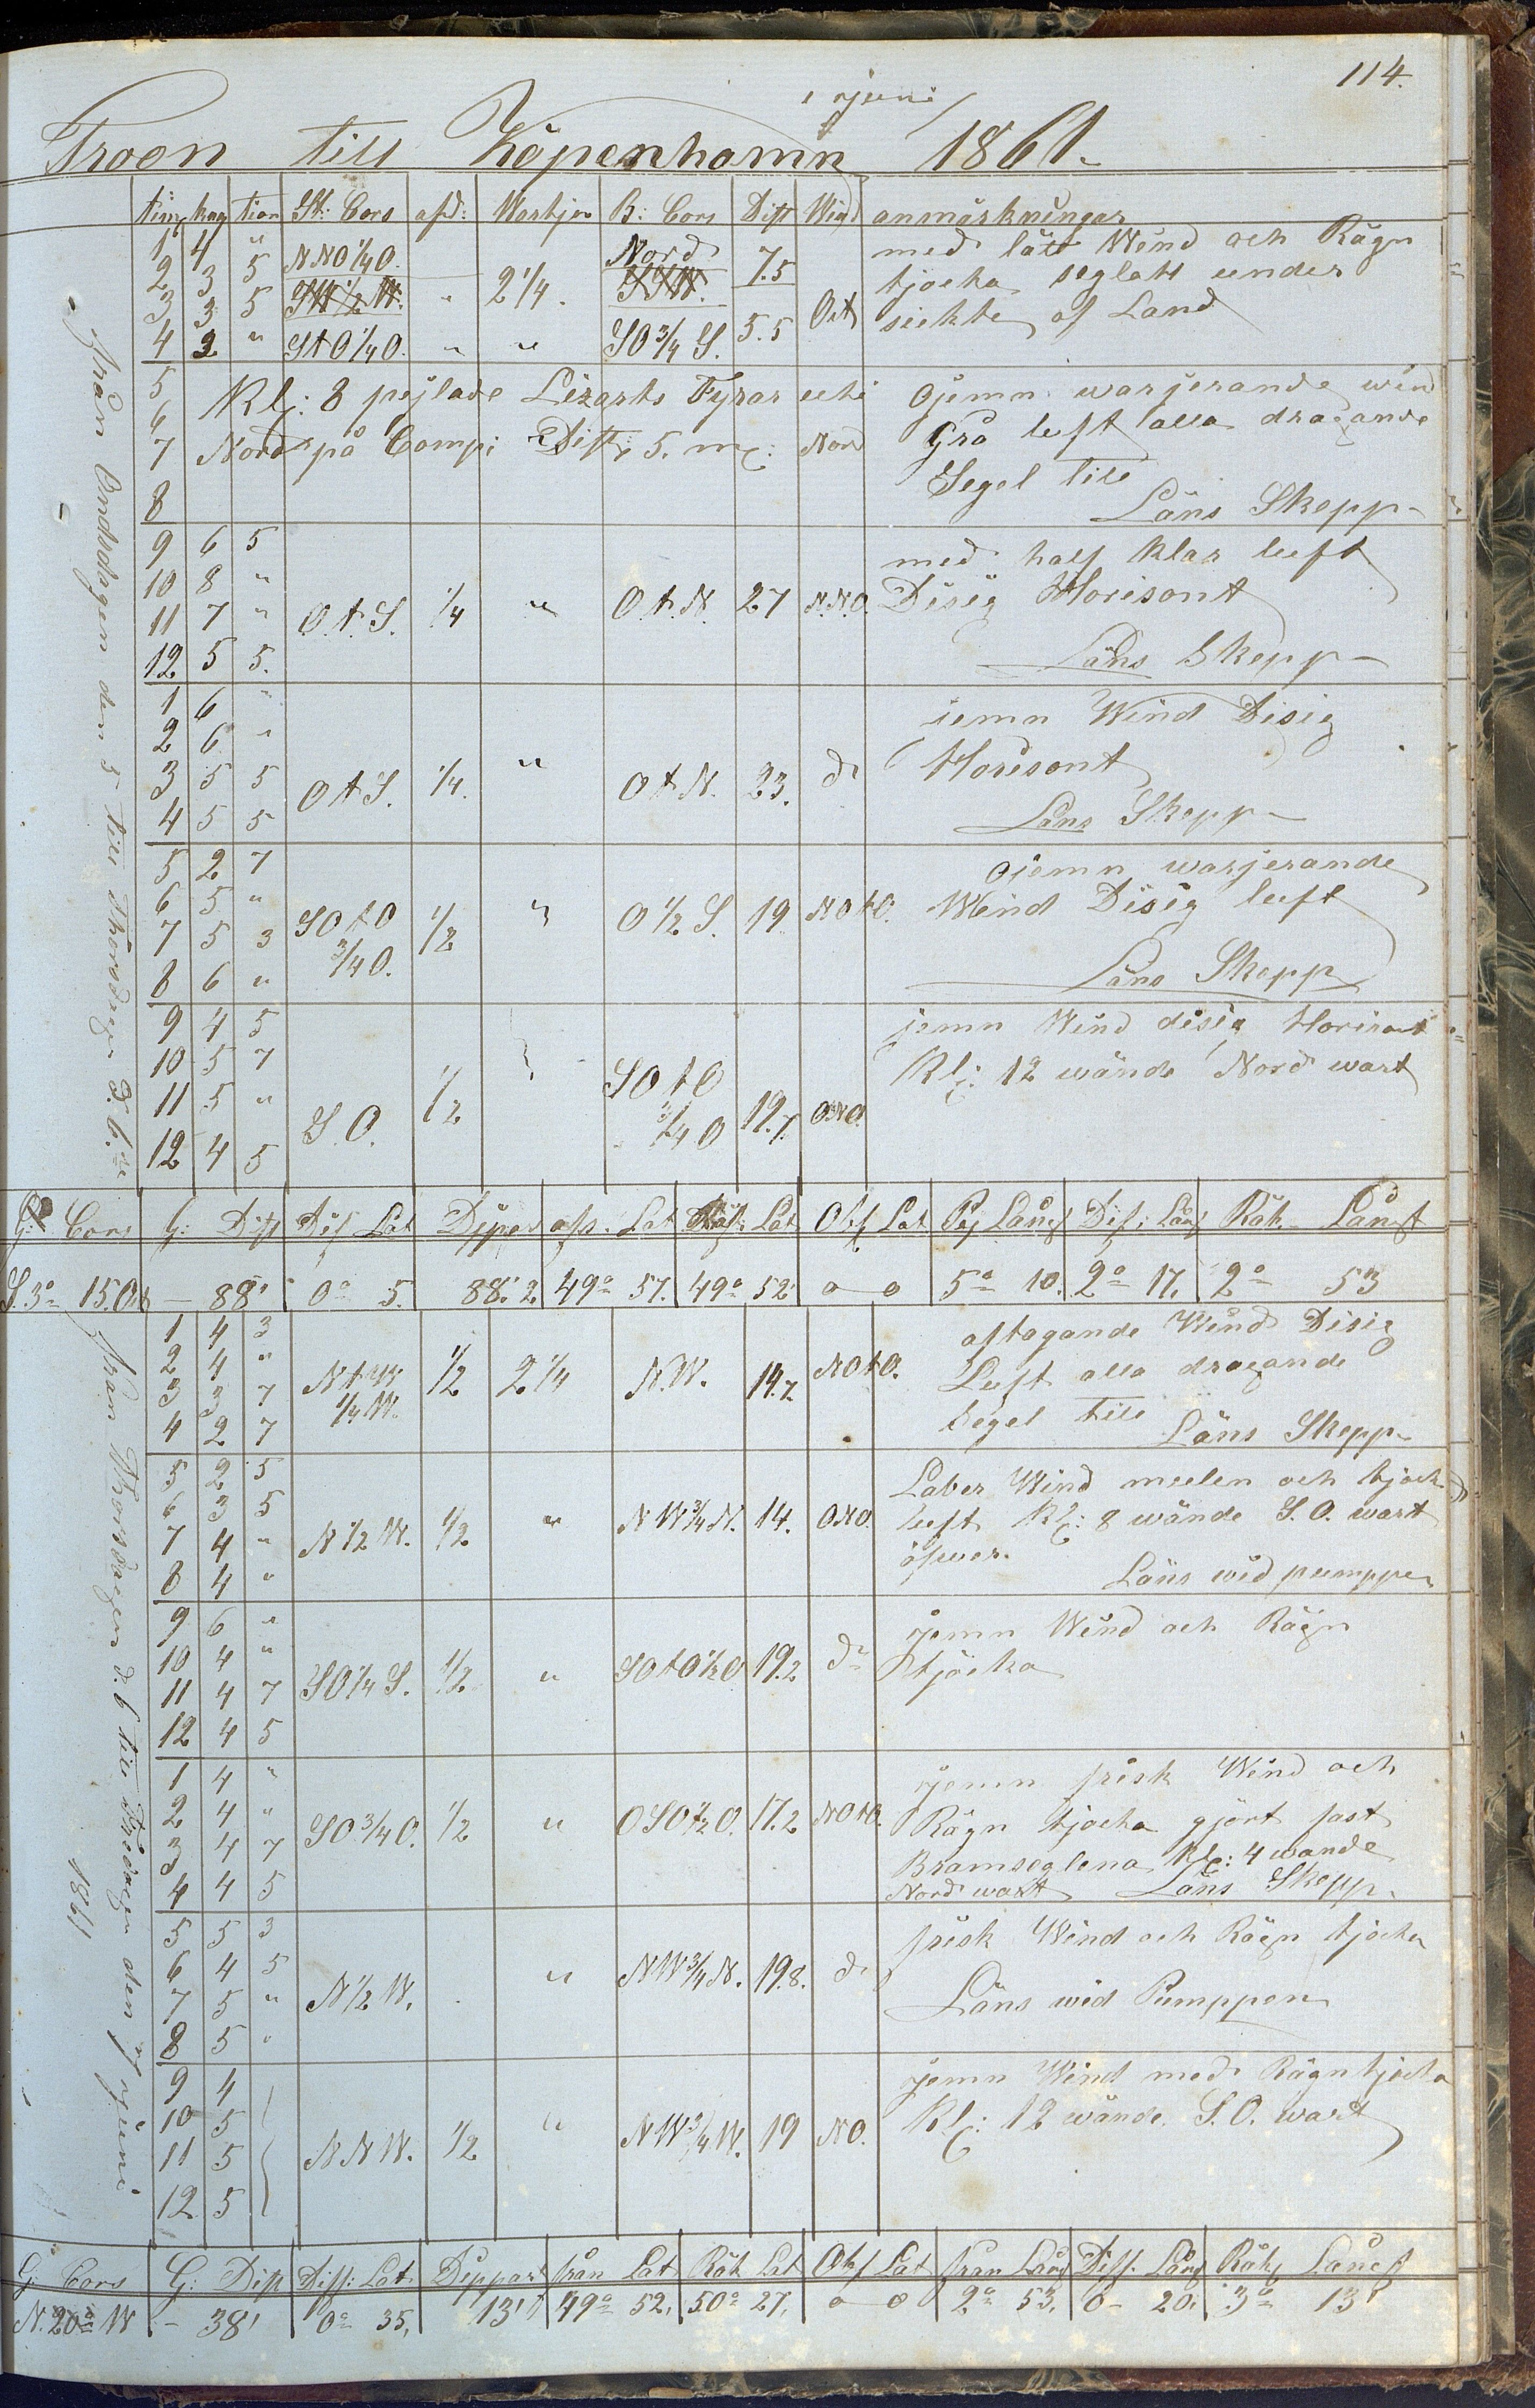 114.
i juni
Troon till Köpenhamn 1861.
tim knop tion St: Cors afd: Wastjon B: Cors Dist Wind anmärkningar
från Ondsdagen den 5 till Thorsdagen d. 6.te
1 4 " NNO 1/4 O. Nord 7.5 med lätt Wind och Rägn
2 3 5 " 2 1/4. tjocka seglats under
3 3 5 Ost sickte af Land
4 2 " StO 1/4 O. " " SO 3/4 S. 5.5
5 ojemn warjerande wind
6 Kl: 8 pejlade Lizarts Fyrar uti Grå luft alla dragande
7 Nord på Comp: Dist: 5. m: Nord Segel till
8 Läns Skepp
9 6 5 med half klar luft
10 8 " Disig Horisont
11 7 " O.t.S. 1/4 " O.t.N. 27 N.N.O.
12 5 5. Läns Skepp
1 6 " jemn Wind Disig
2 6 " Horisont
3 5 5 O t S. 1/4. " O t N. 23. do
4 5 5 Läns Skepp
5 2 7 ojemn warjerande
6 5 " Wind Disig luft
7 5 3 SO t O 3/4 O. 1/2 " O 1/2 S. 19 NO t O.
8 6 " Läns Skepp
9 4 5 jemn Wind disig Horisont
10 5 7 Kl: 12 wände Nord wart
11 5 " S.O. 1/2 " SO t O 3/4 O 19.7. ONO.
12 4 5
G: Cors G: Dist Dif Lat Dipar afs. Lat Räk: Lat Obs Lat Pej Läng Dif: Läng Räk Längt
S. 3° 15. O. – 88' 0° 5. 88.' 2 49° 57. 49° 52' o o 5° 10. 2° 17, 2° 53
från Thorsdagen d. 6 till Fredagen den 7 juni
1861
1 4 3 aftagande Wind Disig
2 4 " N t W 1/4 W. 1/2 2 1/4 N.W. 14.7 NO t O. Luft alla dragande
3 3 7 Segel till
4 2 7 Läns Skepp
5 2 5 Laber Wind mulen och tjock
6 3 5 luft Kl: 8 wände S.O. wart
7 4 " N 1/2 W. 1/2 " N W 3/4 N. 14. ONO. öfwer.
8 4 " Läns wid pumppen
9 6 " jemn Wind och Rägn
10 4 " tjocka
11 4 7 SO 1/4 S. 1/2 " SO t O 1/2 O 19.2 do
12 4 5
1 4 " jemn frisk Wind och
2 4 " SO 3/4 O. 1/2 " OSO 1/2 O. 17.2 NO t O. Rägn tjocka gjört fast
3 4 7 Bramseglena Kl: 4 wände
4 4 5 Nord wart Läns Skepp.
5 5 3 frisk Wind och Rägn tjocka
6 4 5 N 1/2 W. " NW 3/4 N. 19.8. do
7 5 " Läns wid Pumppen
8 5 "
9 4 jemn Wind med Rägn tjocka
10 5 Kl: 12 wände S.O. wart
11 5 N N W. 1/2 " NW 3/4 W. 19 NO.
12 5
G: Cors G: Dist Diff: Lat Deppart från Lat Räk Lat Obs Lat från Läng Diff. Läng Räk Längt
N. 20° W – 38' 0° 35, 13' 49° 52, 50° 27, o o 2° 53, 0 – 20. 3° 13'